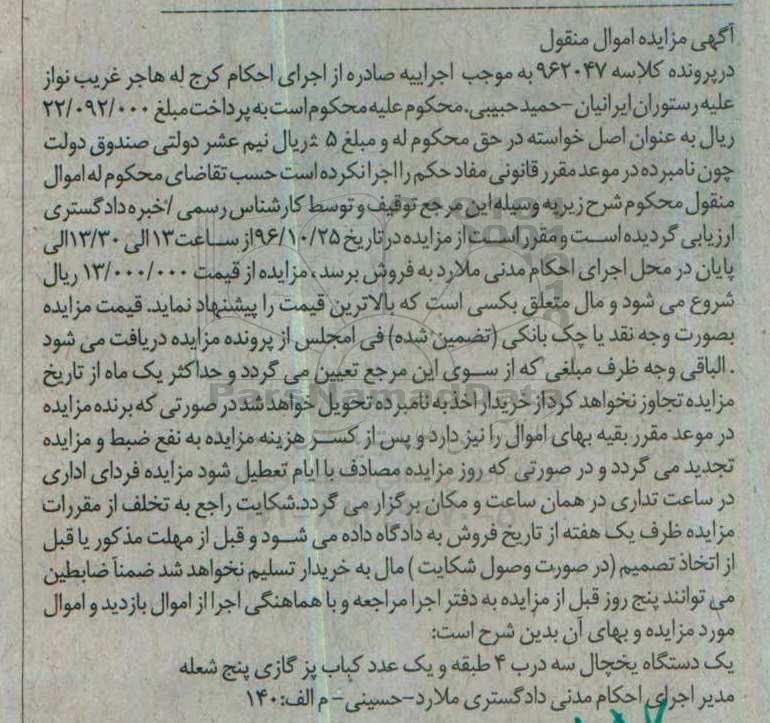 آگهی مزایده اموال منقول
درپرونده کلاسه ۹۶۲۰۴۷ به موجب اجراییه صادره از اجرای احکام کرج له هاجر غریب نواز
علیه رستوران ایرانیان -حمید حبیبی.محکوم علیه محکوم است به پرداخت مبلغ ۲۲/۰۹۲/۰۰۰
ریال به عنوان اصل خواسته در حق محکوم له و مبلغ ۵ ٪ریال نیم عشر دولتی صندوق دولت
چون نامبرده در موعد مقرر قانونی مفاد حکم را اجرا نکرده است حسب تقاضای محکوم له اموال
منقول محکوم شرح زیر به وسیله این مرجع توقیف و توسط کارشناس رسمی /خبره دادگستری
ارزیابی گردیده است و مقرر است از مزایده در تاریخ ۹۶/۱۰/۲۵از ساعت۱۳الی ۱۳/۳۰الی
پایان در محل اجرای احکام مدنی ملارد به فروش برسد ، مزایده از قیمت ۱۳/۰۰۰/۰۰۰ ریال
شروع می شود و مال متعلق بکسی است که بالاترین قیمت را پیشنهاد نماید. قیمت مزایده
بصورت وجه نقد یا چک بانکی (تضمین شده) فی امجلس از پرونده مزایده دریافت می شود
. الباقی وجه ظرف مبلغی که از سوی این مرجع تعیین می گردد و حداکثر یک ماه از تاریخ
مزایده تجاوز نخواهد کرد از خریدار اخذ به نامبرده تحویل خواهد شد در صورتی که برنده مزایده
در موعد مقرر بقیه بهای اموال را نیز دارد و پس از کسر هزینه مزایده به نفع ضبط و مزایده
تجدید می گردد و در صورتی که روز مزایده مصادف با ایام تعطیل شود مزایده فردای اداری
در ساعت تداری در همان ساعت و مکان برگزار می گردد.شکایت راجع به تخلف از مقررات
مزایده ظرف یک هفته از تاریخ فروش به دادگاه داده می شود و قبل از مهلت مذکور یا قبل
از اتخاذ تصمیم (در صورت وصول شکایت ) مال به خریدار تسلیم نخواهد شد ضمناً ضابطین
می توانند پنج روز قبل از مزایده به دفتر اجرا مراجعه و با هماهنگی اجرا از اموال بازدید و اموال
مورد مزایده و بهای آن بدین شرح است:
یک دستگاه یخچال سه درب ۴ طبقه و یک عدد کباب پز گازی پنج شعله
مدیر اجرای احکام مدنی دادگستری ملارد-حسینی- م الف:۱۴۰
ParsNamadData